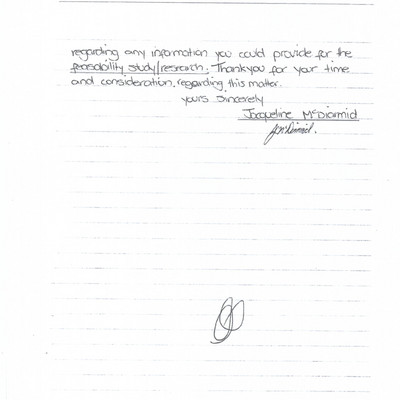 regarding any information you could provide for the
feasability study/research. Thankyou for your time
and consideration, regarding this matter.
yours Sincerely
Jacqueline McDiarmid